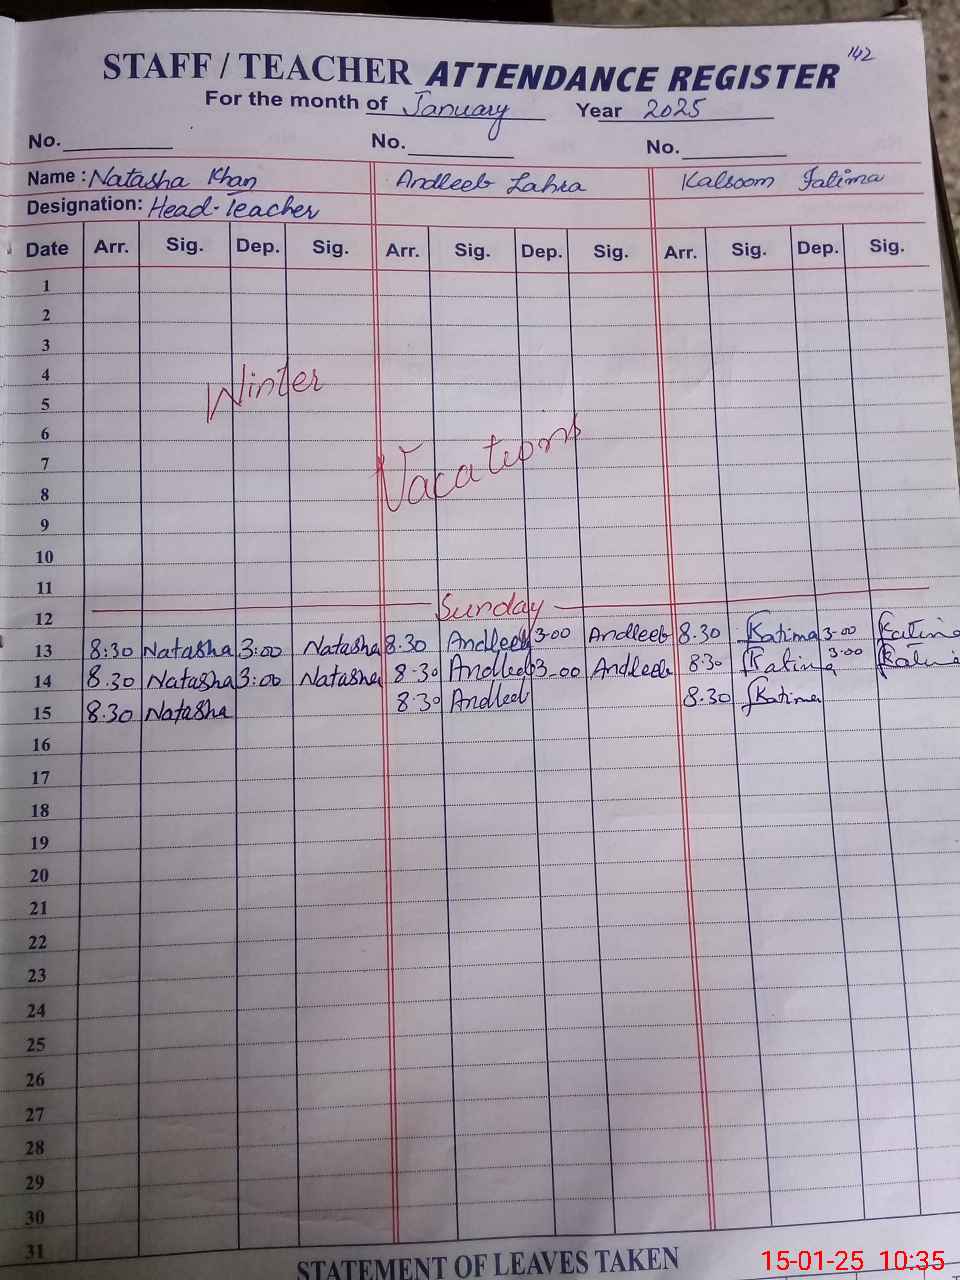 142
STAFF / TEACHER ATTENDANCE REGISTER
For the month of January Year 2025
No. No. No.
Name : Natasha Khan Andleeb Zahra Kalsoom Fatima
Designation: Head-Teacher
Date Arr. Sig. Dep. Sig. Arr. Sig. Dep. Sig. Arr. Sig. Dep. Sig.
1
2
3
4 Winter
5
6
7 Vacations
8
9
10
11
12 Sunday
13 8:30 Natasha 3:00 Natasha 8.30 Andleeb 3-00 Andleeb 8.30 Katima 3-00
14 8.30 Natasha 3:00 Natasha 8-30 Andleeb 3-00 Andleeb 8.30 3-00
15 8.30 Natasha 8.30 Andleeb 8.30 Katima
16
17
18
19
20
21
22
23
24
25
26
27
28
29
30
31
STATEMENT OF LEAVES TAKEN
15-01-25 10:35